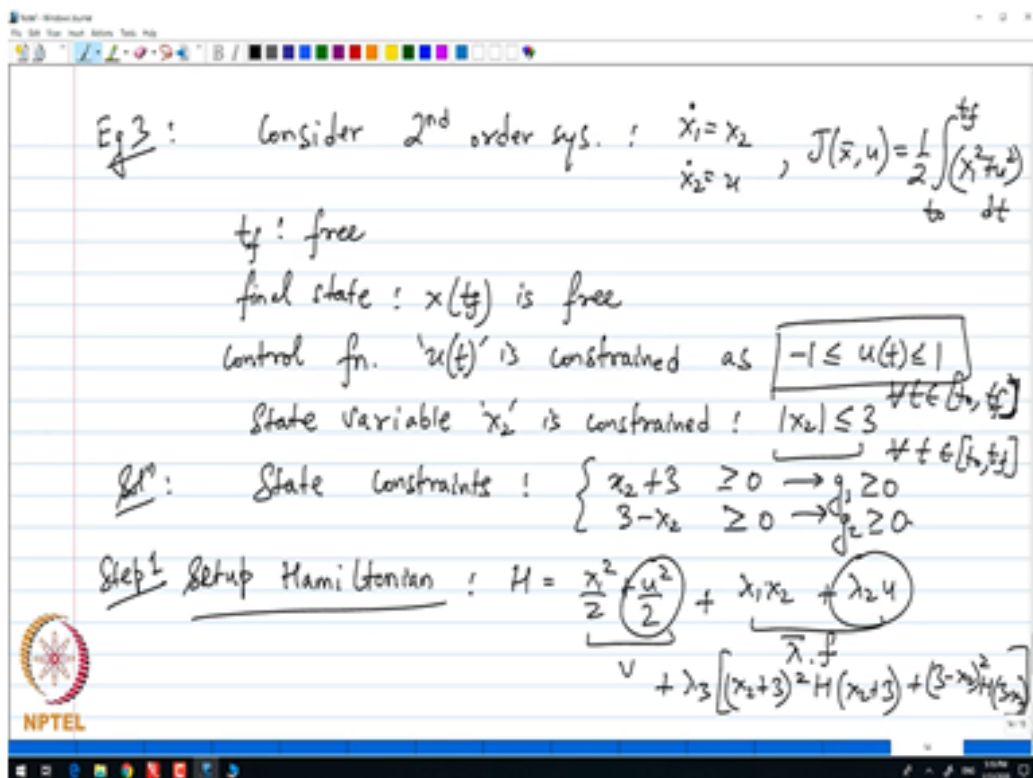 Eg 3 : Consider 2nd order sys. : ẋ₁ = x₂ , J(x̄, u) = 1/2 ∫_{t₀}^{t_f} (x₁² + u²) dt
ẋ₂ = u
t_f : free
final state : x(t_f) is free
control fn. 'u(t)' is constrained as -1 ≤ u(t) ≤ 1
∀ t ∈ [t₀, t_f]
State variable 'x₂' is constrained : |x₂| ≤ 3
∀ t ∈ [t₀, t_f]
Solⁿ : State Constraints : { x₂+3 ≥ 0 → g₁ ≥ 0
3-x₂ ≥ 0 → g₂ ≥ 0
Step 1 Setup Hamiltonian : H = x₁²/2 + u²/2 + λ₁x₂ + λ₂u
V λ̄.f
+ λ₃ [(x₂+3)² H(x₂+3) + (3-x₂)² H(3-x₂)]
NPTEL